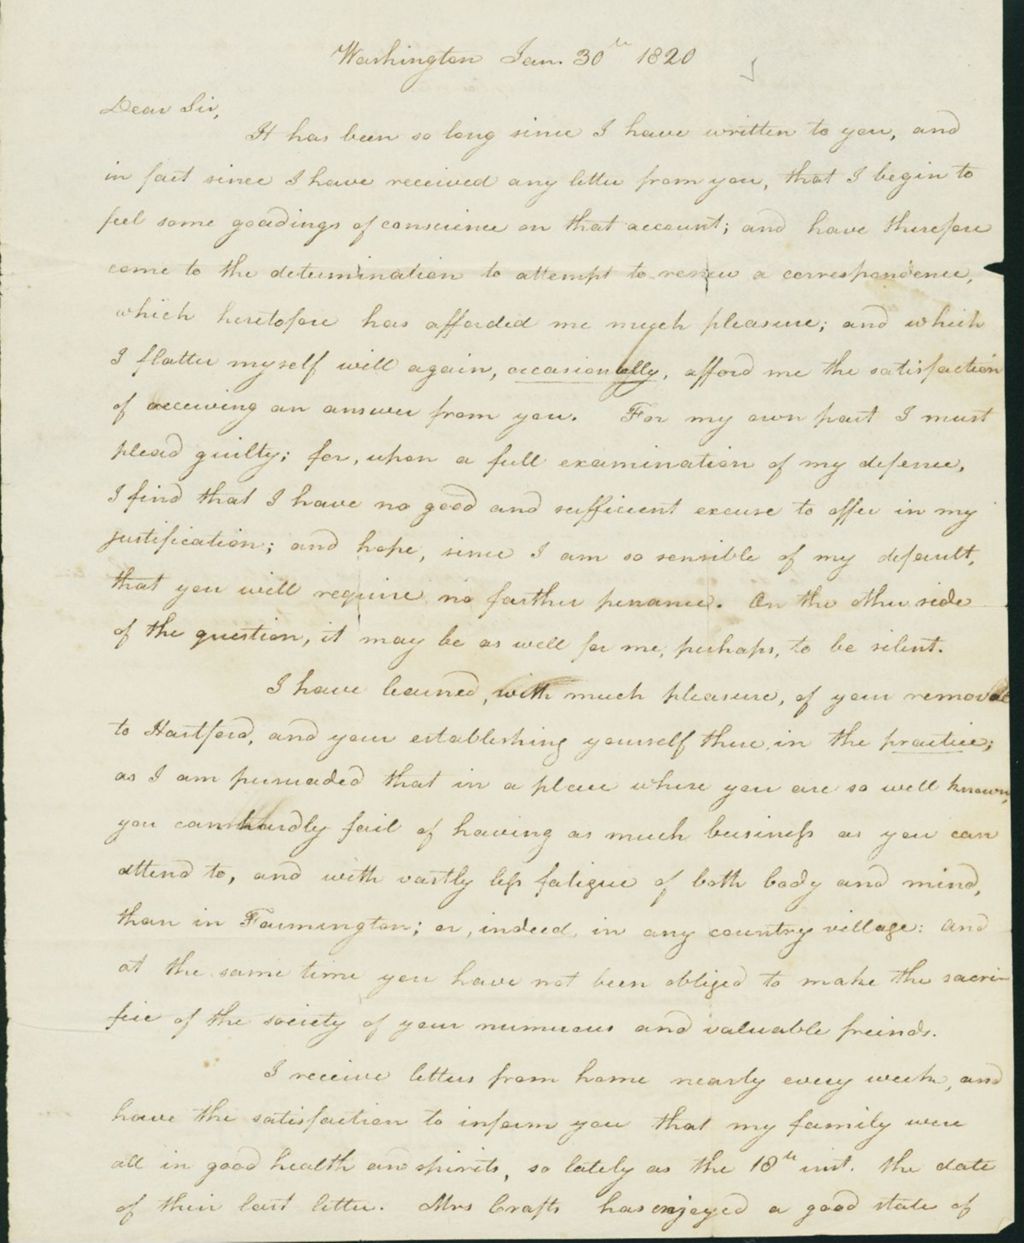 Washington Jan. 30th 1820
Dear Sir,
It has been so long since I have written to you, and
in fact since I have received any letter from you, that I begin to
feel some goadings of conscience on that account; and have therefore
come to the determination to attempt to renew a correspondence,
which heretofore has afforded me much pleasure; and which
I flatter myself will again, occasionally, afford me the satisfaction
of receiving an answer from you. For my own part I must
plead guilty; for, upon a full examination of my defence,
I find that I have no good and sufficient excuse to offer in my
justification; and hope, since I am so sensible of my default,
that you will require no farther penance. On the other side
of the question, it may be as well for me, perhaps, to be silent.
I have learned, with much pleasure, of your removal
to Hartford, and your establishing yourself there in the practice;
as I am persuaded that in a place where you are so well known,
you can hardly fail of having as much business as you can
attend to, and with vastly less fatigue of both body and mind,
than in Farmington; or, indeed, in any country village: and
at the same time you have not been obliged to make the sacri-
fice of the society of your numerous and valuable freinds.
I receive letters from home nearly every week, and
have the satisfaction to inform you that my family were
all in good health and spirits, so lately as the 18th inst. the date
of their last letter. Mrs Crafts has enjoyed a good state of